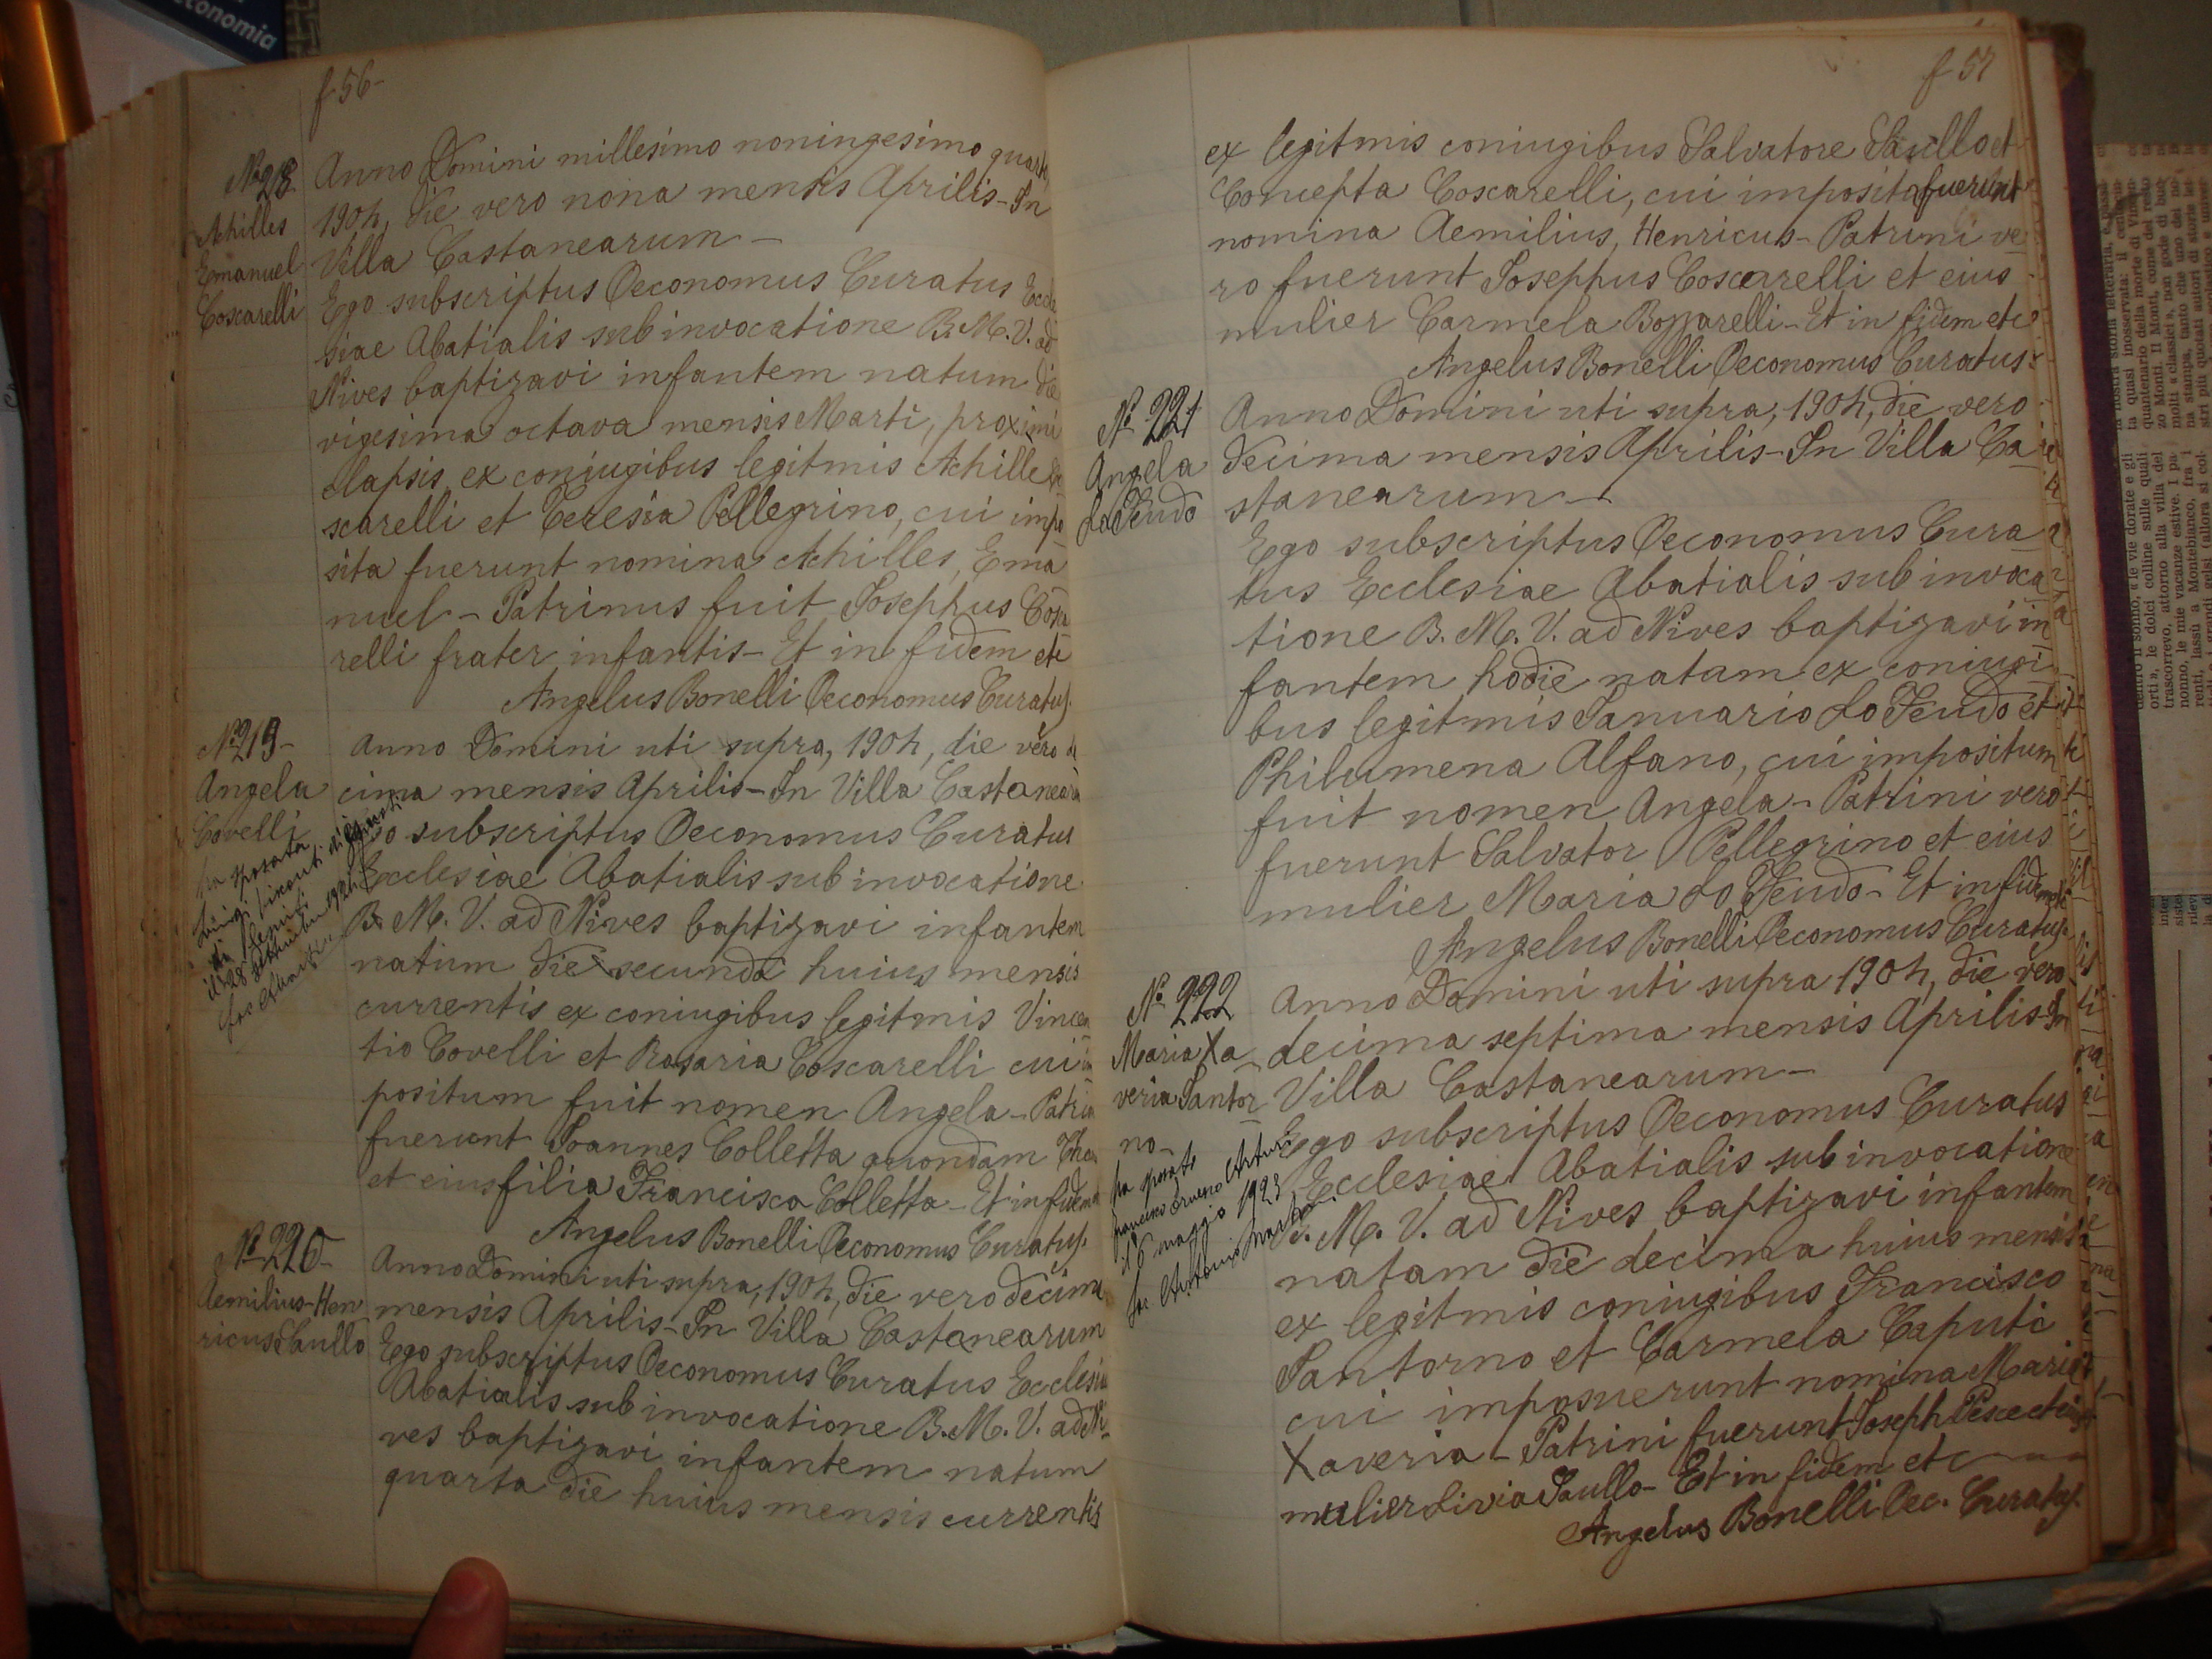 conomia
f 56-
Nº 218
Achilles
Emanuel
Coscarelli
Anno Domini millesimo noningesimo quarto,
1904, die vero nona mensis Aprilis - In
Villa Castanearum -
Ego subscriptus Oeconomus Curatus Eccle
siae Abatialis sub invocatione B. M. V. ad
Nives baptizavi infantem natum die
vigesima octava mensis Marti, proximi
elapsis, ex coniugibus legitmis Achille Co
scarelli et Teresia Pellegrino, cui impo
sita fuerunt nomina Achilles, Ema
nuel - Patrinus fuit Iosephus Cosca
relli frater infantis - Et in fidem etc
Angelus Bonelli Oeconomus Curatus.
Nº 219-
Angela
Covelli
ha sposato
di
il 28 settembre 1921
Anno Domini uti supra, 1904, die vero de
cima mensis Aprilis - In Villa Castanearum
Ego subscriptus Oeconomus Curatus
Ecclesiae Abatialis sub invocatione
B. M. V. ad Nives baptizavi infantem
natum die secunda huius mensis
currentis ex coniugibus legitmis Vincen
tio Covelli et Rosaria Coscarelli cui im
positum fuit nomen Angela - Patrini
fuerunt Ioannes Colletta quondam
et eius filia Francisca Colletta - Et in fidem
Angelus Bonelli Oeconomus Curatus.
Nº 220-
Aemilius-Hen
ricus Saullo
Anno Domini uti supra, 1904, die vero decima
mensis Aprilis - In Villa Castanearum
Ego subscriptus Oeconomus Curatus Ecclesiae
Abatialis sub invocatione B. M. V. ad Ni-
ves baptizavi infantem natum
quarta die huius mensis currentis
f 57
ex legitmis coniugibus Salvatore Saullo et
Concepta Coscarelli, cui imposita fuerunt
nomina Aemilius, Henricus - Patrini ve
ro fuerunt Iosephus Coscarelli et eius
mulier Carmela Bozzarelli - Et in fidem etc
Angelus Bonelli Oeconomus Curatus.
Nº 221
Angela
Lo Feudo
Anno Domini uti supra, 1904, die vero
decima mensis Aprilis - In Villa Ca
stanearum -
Ego subscriptus Oeconomus Cura
tus Ecclesiae Abatialis sub invoca
tione B. M. V. ad Nives baptizavi in
fantem hodie natam ex coniugi
bus legitmis Ianuario Lo Feudo et
Philumena Alfano, cui impositum
fuit nomen Angela - Patrini vero
fuerunt Salvator Pellegrino et eius
mulier Maria Lo Feudo - Et in fidem etc
Angelus Bonelli Oeconomus Curatus.
Nº 222
Maria Xa
veria Santor
no-
ha sposato
Francesco
il 6 maggio 1923
Sac. Antonio
Anno Domini uti supra 1904, die vero
decima septima mensis Aprilis - In
Villa Castanearum -
Ego subscriptus Oeconomus Curatus
Ecclesiae Abatialis sub invocatione
B. M. V. ad Nives baptizavi infantem
natam die decima huius mensis
ex legitmis coniugibus Francisco
Santorno et Carmela Caputi
cui imposuerunt nomina Maria
Xaveria - Patrini fuerunt Ioseph Pesce et eius
mulier Livia Saullo - Et in fidem etc
Angelus Bonelli Oec. Curatus.